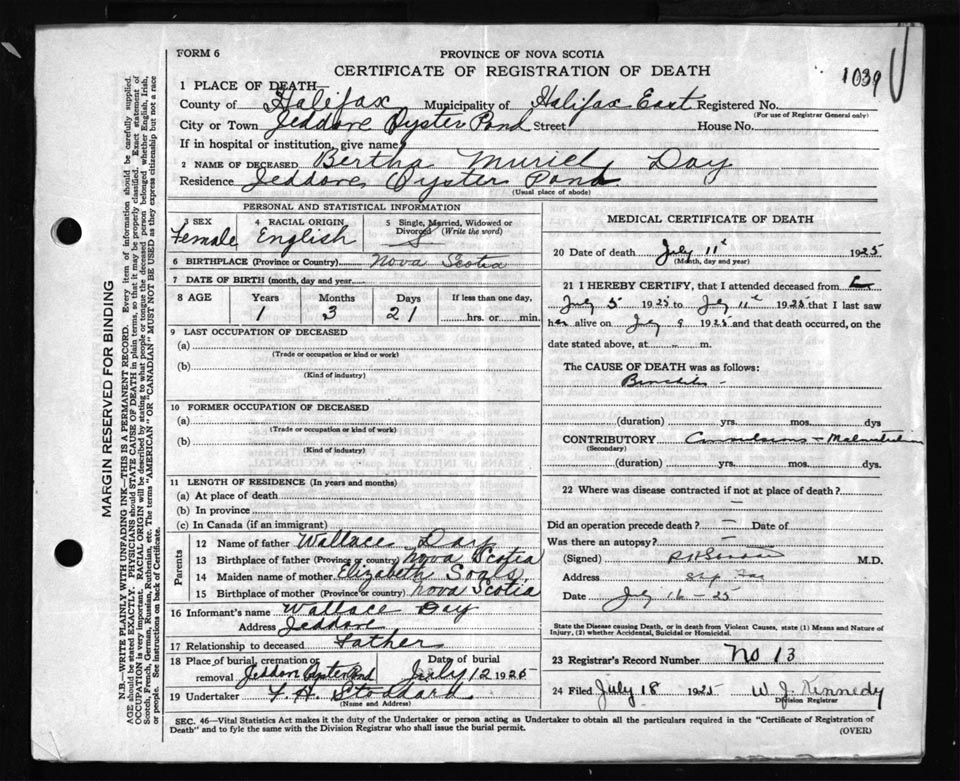 FORM 6
PROVINCE OF NOVA SCOTIA
CERTIFICATE OF REGISTRATION OF DEATH
1039
1 PLACE OF DEATH
County of Halifax Municipality of Halifax East Registered No.
(For use of Registrar General only)
City or Town Jeddore Oyster Pond Street House No.
If in hospital or institution, give name
2 NAME OF DECEASED Bertha Muriel Day
Residence Jeddore Oyster Pond
(Usual place of abode)
PERSONAL AND STATISTICAL INFORMATION
3 SEX 4 RACIAL ORIGIN 5 Single, Married, Widowed or
Divorced (Write the word)
Female English S
6 BIRTHPLACE (Province or Country) Nova Scotia
7 DATE OF BIRTH (month, day and year)
8 AGE Years Months Days If less than one day,
1 3 21 hrs. or min.
9 LAST OCCUPATION OF DECEASED
(a)
(Trade or occupation or kind or work)
(b)
(Kind of industry)
10 FORMER OCCUPATION OF DECEASED
(a)
(Trade or occupation or kind of work)
(b)
(Kind of industry)
11 LENGTH OF RESIDENCE (In years and months)
(a) At place of death
(b) In province
(c) In Canada (if an immigrant)
Parents
12 Name of father Wallace Day
13 Birthplace of father (Province or country) Nova Scotia
14 Maiden name of mother Elizabeth
15 Birthplace of mother (Province or country) Nova Scotia
16 Informant's name Wallace Day
Address Jeddore
17 Relationship to deceased Father
18 Place of burial, cremation or Date of burial
removal Jeddore Oyster Pond July 12 1925
19 Undertaker Stoddard
(Name and Address)
MEDICAL CERTIFICATE OF DEATH
20 Date of death July 11 1925
(Month, day and year)
21 I HEREBY CERTIFY, that I attended deceased from
July 5 1925 to July 11 1925 that I last saw
her alive on July 9 1925 and that death occurred, on the
date stated above, at m.
The CAUSE OF DEATH was as follows:
Bronchitis
(duration) yrs. mos. dys
CONTRIBUTORY Convulsions - Malnutrition
(Secondary)
(duration) yrs. mos. dys.
22 Where was disease contracted if not at place of death?
Did an operation precede death? Date of
Was there an autopsy?
(Signed) M.D.
Address
Date July 16-25
State the Disease causing Death, or in death from Violent Causes, state (1) Means and Nature of
Injury, (2) whether Accidental, Suicidal or Homicidal.
23 Registrar's Record Number No 13
24 Filed July 18 1925 W. J. Kennedy
Division Registrar
SEC. 46—Vital Statistics Act makes it the duty of the Undertaker or person acting as Undertaker to obtain all the particulars required in the "Certificate of Registration of
Death" and to fyle the same with the Division Registrar who shall issue the burial permit.
(OVER)
MARGIN RESERVED FOR BINDING
N.B.—WRITE PLAINLY WITH UNFADING INK—THIS IS A PERMANENT RECORD. Every item of information should be carefully supplied.
AGE should be stated EXACTLY. PHYSICIANS should STATE CAUSE OF DEATH in plain terms, so that it may be properly classified. Exact statement of
OCCUPATION is very important. RACIAL ORIGIN will be described by stating to what people or tongue the deceased person belonged whether English, Irish,
Scotch, French, German, Russian, Ruthenian, etc. The terms "AMERICAN" OR "CANADIAN" MUST NOT BE USED as they express citizenship but not a race
or people. See instructions on back of Certificate.